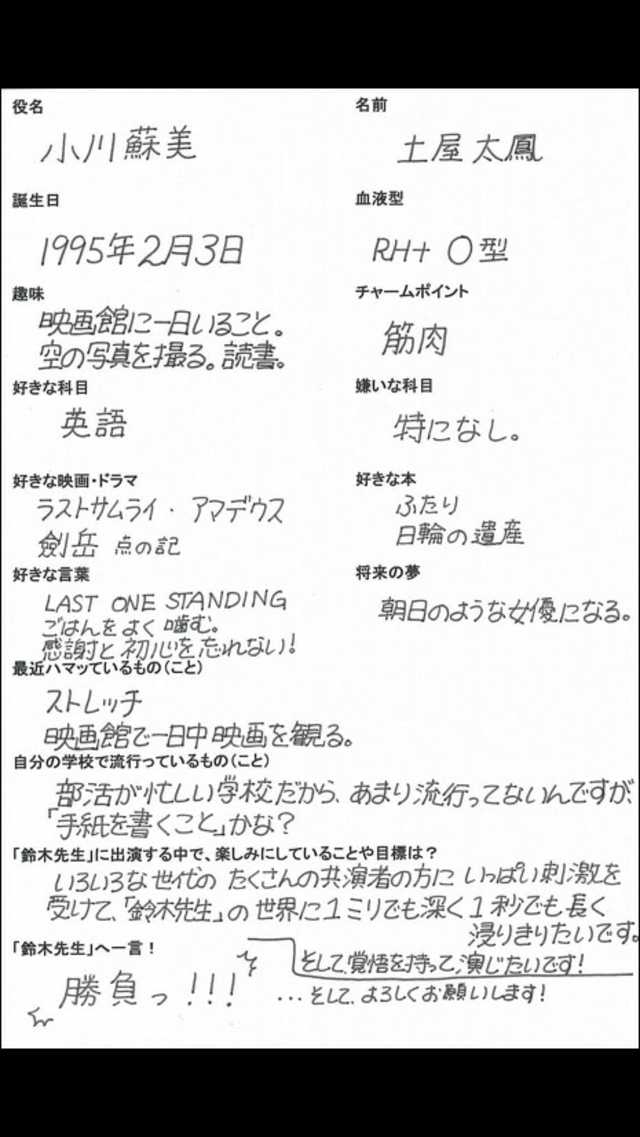 役名
小川蘇美
名前
土屋太鳳
誕生日
1995年2月3日
血液型
RH+ O型
趣味
映画館に一日いること。
空の写真を撮る。読書。
チャームポイント
筋肉
好きな科目
英語
嫌いな科目
特になし。
好きな映画・ドラマ
ラストサムライ・アマデウス
劒岳 点の記
好きな本
ふたり
日輪の遺産
好きな言葉
LAST ONE STANDING
ごはんをよく噛む。
感謝と初心を忘れない!
将来の夢
朝日のような女優になる。
最近ハマッているもの(こと)
ストレッチ
映画館で一日中映画を観る。
自分の学校で流行っているもの(こと)
部活が忙しい学校だから、あまり流行ってないんですが、
「手紙を書くこと」かな?
「鈴木先生」に出演する中で、楽しみにしていることや目標は?
いろいろな世代のたくさんの共演者の方にいっぱい刺激を
受けて、「鈴木先生」の世界に1ミリでも深く1秒でも長く
浸りきりたいです。
そして、覚悟を持って、演じたいです!
「鈴木先生」へ一言!
勝負っ!!!
...そして、よろしくお願いします!